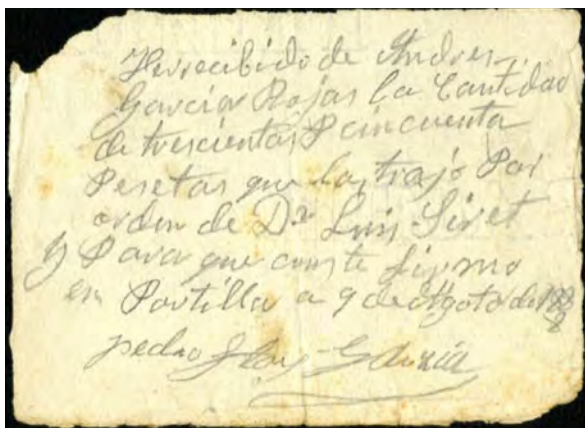 He recibido de Andres
Garcia Rojas la Cantidad
de trescientas cincuenta
Pesetas que las trajo Por
orden de Dn Luis Siret
y Para que conste firmo
en Portilla a 9 de Agoto de
pedro Flores Garcia